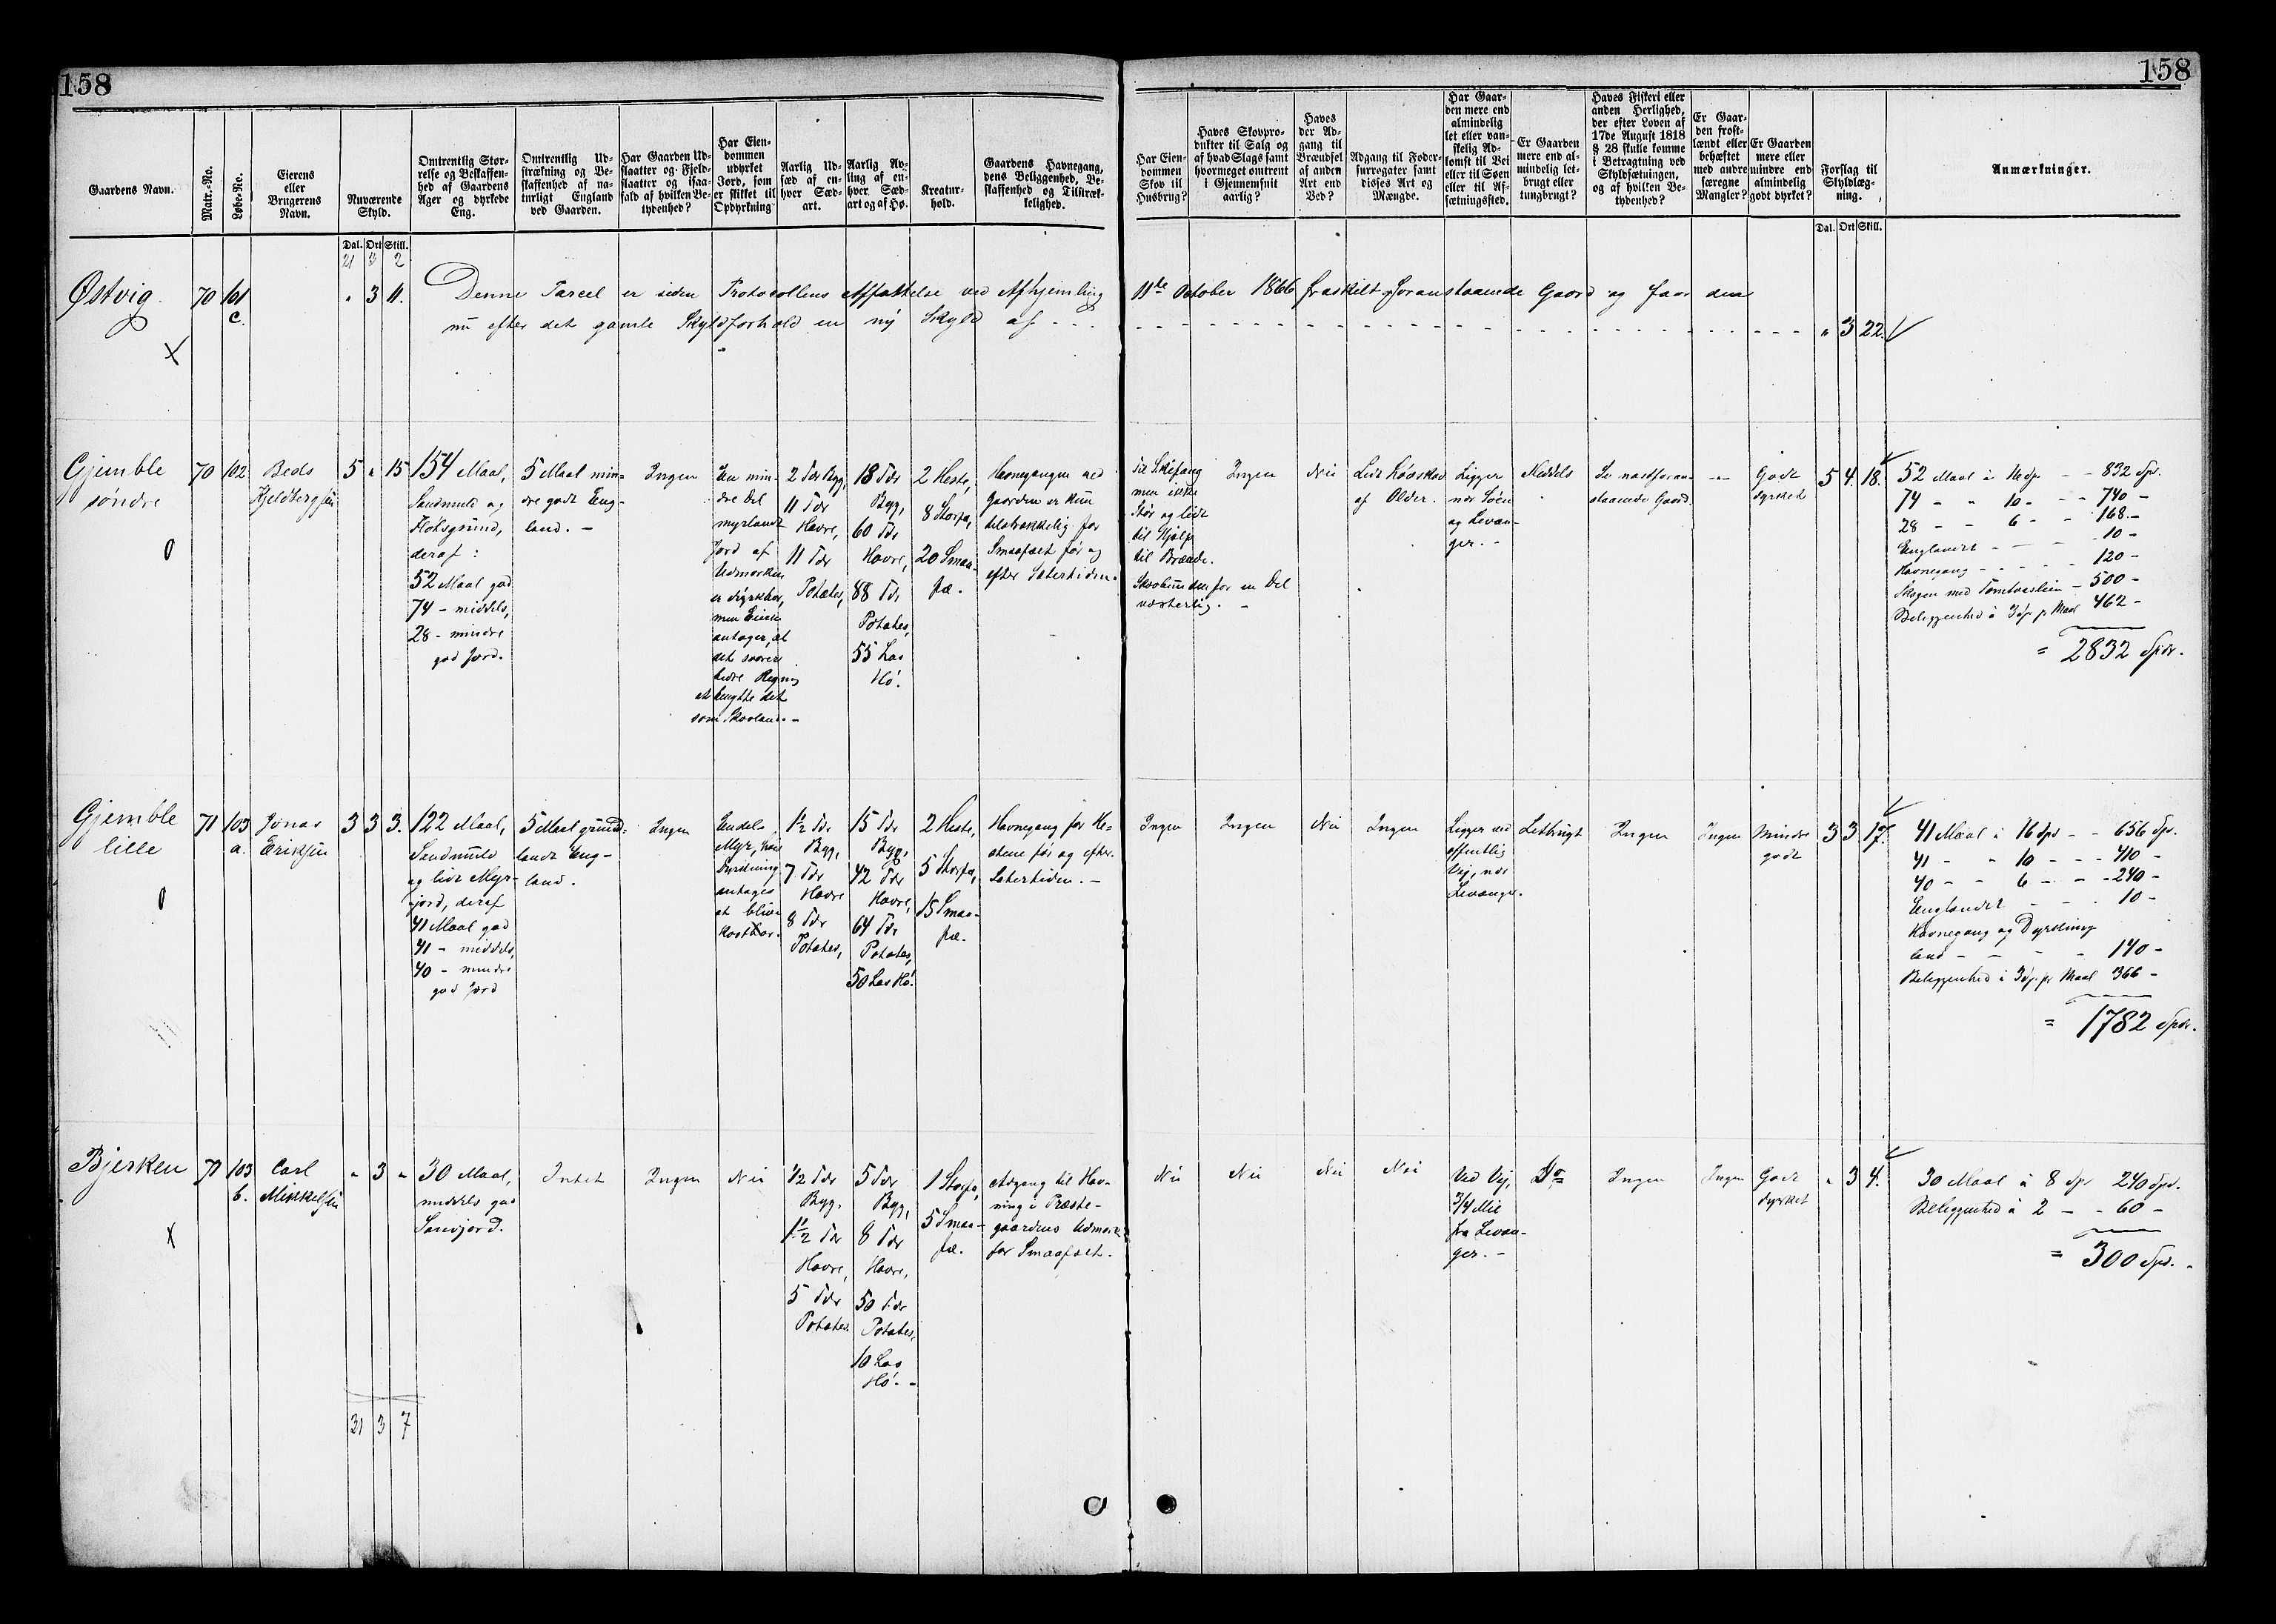 158
158
Gaardens Navn.
Matr.-No.
Løbe-No.
Eierens
eller
Brugerens
Navn.
Nuværende
Skyld.
Omtrentlig Stør-
relse og Beskaffen-
hed af Gaardens
Ager og dyrkede
Eng.
Omtrentlig Ud-
strækning og Be-
skaffenhed af na-
turligt England
ved Gaarden.
Har Gaarden Ud-
slaatter og Fjeld-
slaatter og isaa-
fald af hvilken Be-
tydenhed?
Har Eien-
dommen
udyrket
Jord, som
er skikket til
Opdyrkning
Aarlig Ud-
sæd af en-
hver Sæd-
art.
Aarlig Av-
ling af en-
hver Sæd-
art og af Hø.
Kreatur-
hold.
Gaardens Havnegang,
dens Beliggenhed, Be-
skaffenhed og Tilstræk-
kelighed.
Har Eien-
dommen
Skov til
Husbrug?
Haves Skovpro-
dukter til Salg og
af hvad Slags samt
hvormeget omtrent
i Gjennemsnit
aarlig?
Haves
der Ad-
gang til
Brændsel
af anden
Art end
Ved?
Adgang til Foder-
surrogater samt
disses Art og
Mængde.
Har Gaar-
den mere end
almindelig
let eller van-
skelig Ad-
komst til Vei
eller til Søen
eller til Af-
sætningssted.
Er Gaarden
mere end al-
mindelig let-
brugt eller
tungbrugt?
Haves Fiskeri eller
anden Herlighed,
der efter Loven af
17de August 1818
§ 28 skulle komme
i Betragtning ved
Skyldsætningen,
og af hvilken Be-
tydenhed?
Er Gaar-
den frost-
lændt eller
behæftet
med andre
særegne
Mangler?
Er Gaarden
mere eller
mindre end
almindelig
godt dyrket?
Forslag til
Skyldlæg-
ning.
Anmærkninger.
Dal. Ort Skill.
21 3 2
Dal. Ort Skill.
Østvig 70 101 c. " 3 11.
Denne Parcel er siden Protocollens Affattelse ved Afhjemling 11te October 1866 fraskilt foranstaaende Gaard og faar den
nu efter det gamle Skyldforhold en ny Skyld af - - - " 3 22.
X
Gjemble
søndre
70 102
Beds
Kjeldbergsen
5 " 15
154 Maal,
Sandmuld og
deraf:
52 Maal god
74 - middels,
28 - mindre
god Jord.
5 Maal min-
dre godt Eng-
land. -
Ingen
En min-
dre Del
myrlændt
Jord af
Udmarken
er dyrkbar,
men Eieren
antager, at
det svarer
bedre Regning
at benytte det
som Skovland. -
2 Tdr Byg,
11 Tdr
Havre,
11 Tdr
Potetes,
18 Tdr
Byg,
60 Tdr
Havre,
88 Tdr
Potetes,
55 Læs
Hø.
2 Heste,
8 Storfæ,
20 Smaa-
fæ.
Havnegangen ved
Gaarden er kun
tilstrækkelig for
Smaafæet før og
efter Sætertiden.
Til Skifang
men ikke
stør og lidt
til Hjælp
til Brænde.
Skovbunden for en Del
væxterlig. -
Ingen
Nei
Lidt Løvskov
af Older.
Ligger
nær Søen
og Levan-
ger. -
Middels
Se næstforan-
staaende Gaard.
Godt
dyrket
5 4 18.
52 Maal à 16 Spd - - 832 Spd.
74 - " 10 - - - 740 -
28 - - 6 - - 168. -
Englandet - - - 10 -
Havnegang - - - - 120 -
Skogen med Tomtvasleien - 500 -
Beliggenhed à 3 Sp. pr Maal 462 -
= 2832 Spdr.
Gjemble
lille
71 103 a.
Jonas
Eriksen
3 3 3.
122 Maal,
Sandmuld
og lidt Myr-
jord, deraf
41 Maal god
41 - middels,
40 - mindre
god Jord
5 Maal grund-
lændt Eng-
land.
Ingen
Endel
Myr, hvis
Dyrkning
antages
at blive
kostbar.
1½ Tdr
Byg,
7 Tdr
Havre
8 Tdr
Potetes,
15 Tdr
Byg,
42 Tdr
Havre,
64 Tdr
Potetes,
50 Læs Hø.
2 Heste,
5 Storfæ,
15 Smaa-
fæ.
Havnegang for He-
stene før og efter
Sætertiden. -
Ingen
Ingen
Nei
Ingen
Ligger ved
offentlig
Vej, nær
Levanger.
Letbrugt
Ingen
Ingen
Mindre
godt
3 3 17.
41 Maal à 16 Spd - - 656 Sp.
41 - " 10 - - - 410 -
40 - " 6 - - - 240 -
Englandet - - 10 -
Havnegang og Dyrknings
land - - - - 140 -
Beliggenhed à 3 Sp. pr Maal 366 -
= 1782 Spdr.
Bjerken
X
71 103 b.
Carl
Mikkelsen
" 3 "
30 Maal,
middels god
Sandjord.
Intet
Ingen
Nei
½ Tdr
Byg,
1½ Tdr
Havre,
5 Tdr
Potetes.
5 Tdr
Byg,
8 Tdr
Havre,
50 Tdr
Potetes,
10 Læs
Hø. -
1 Storfæ,
5 Smaa-
fæ.
Adgang til Hav-
ning i Præste-
gaardens Udmark
for Smaafæet.
Nei
Nei
Nei
Nei
Ved Vej,
3/4 Mil
fra Levan-
ger. -
Do
Ingen
Ingen
Godt
dyrket
" 3 4.
30 Maal à 8 Spd 240 Spd.
Beliggenhed à 2 - - 60 -
= 300 Spd.
31 3 7